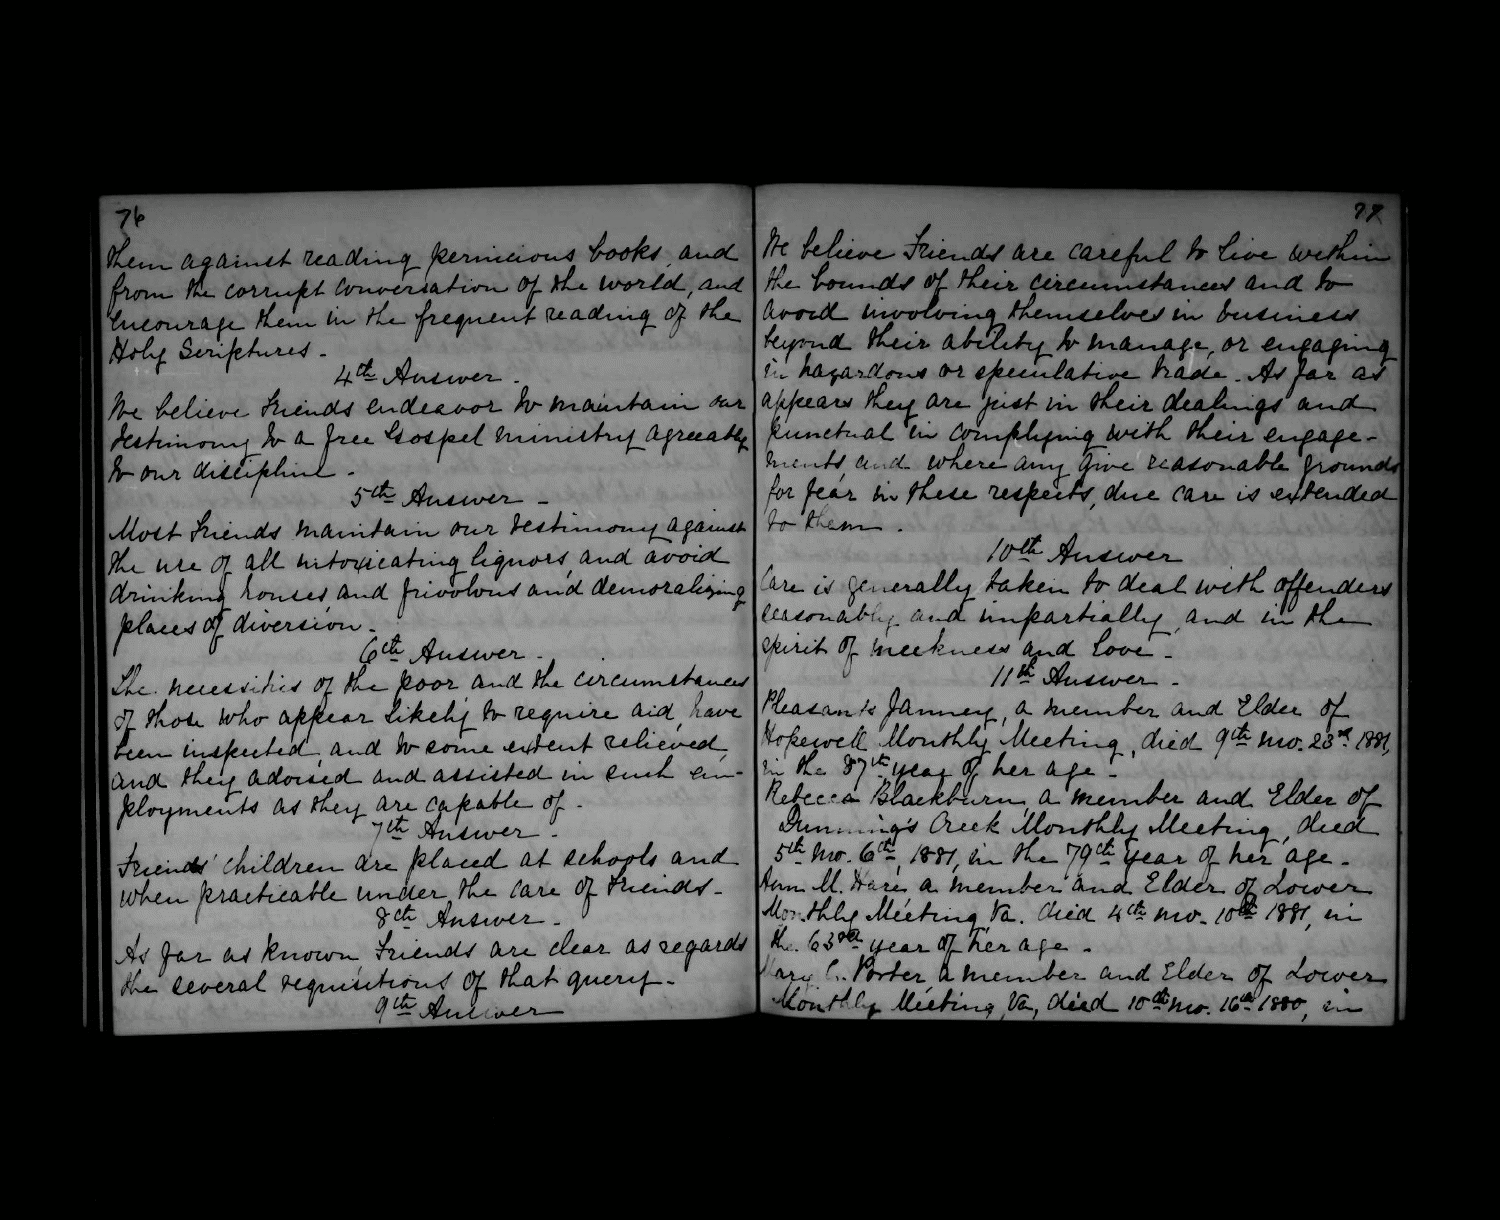 76
them against reading pernicious books, and
from the corrupt conversation of the world, and
encourage them in the frequent reading of the
Holy Scriptures.
4th Answer.
We believe Friends endeavor to maintain our
testimony to a free Gospel ministry agreeably
to our discipline.
5th Answer -
Most Friends maintain our testimony against
the use of all intoxicating liquors, and avoid
drinking houses, and frivolous and demoralizing
places of diversion.
6th Answer.
The necessities of the poor and the circumstances
of those who appear likely to require aid, have
been inspected, and to some extent relieved,
and they advised and assisted in such em-
ployments as they are capable of.
7th Answer.
Friends' children are placed at schools and
when practicable under the care of Friends.
8th Answer.
As far as known Friends are clear as regards
the several requisitions of that query.
9th Answer
77
We believe Friends are careful to live within
the bounds of their circumstances and to
avoid involving themselves in business
beyond their ability to manage, or engaging
in hazardous or speculative trade. As far as
appears they are just in their dealings and
punctual in complying with their engage-
ments, and where any give reasonable grounds
for fear in these respects, due care is extended
to them.
10th Answer
Care is generally taken to deal with offenders
seasonably and impartially, and in the
spirit of meekness and love.
11th Answer.
Pleasants Janney, a member and Elder of
Hopewell Monthly Meeting, died 9th mo. 23rd 1881,
in the 87th year of her age.
Rebecca Blackburn, a member and Elder of
Dunning's Creek Monthly Meeting, died
5th mo. 6th, 1881, in the 79th year of her age.
Ann M. Hare, a member and Elder of Lower
Monthly Meeting Va. died 4th mo. 10th 1881, in
the 63rd year of her age.
Mary C. Porter a member and Elder of Lower
Monthly Meeting, Va, died 10th mo. 16th 1880, in